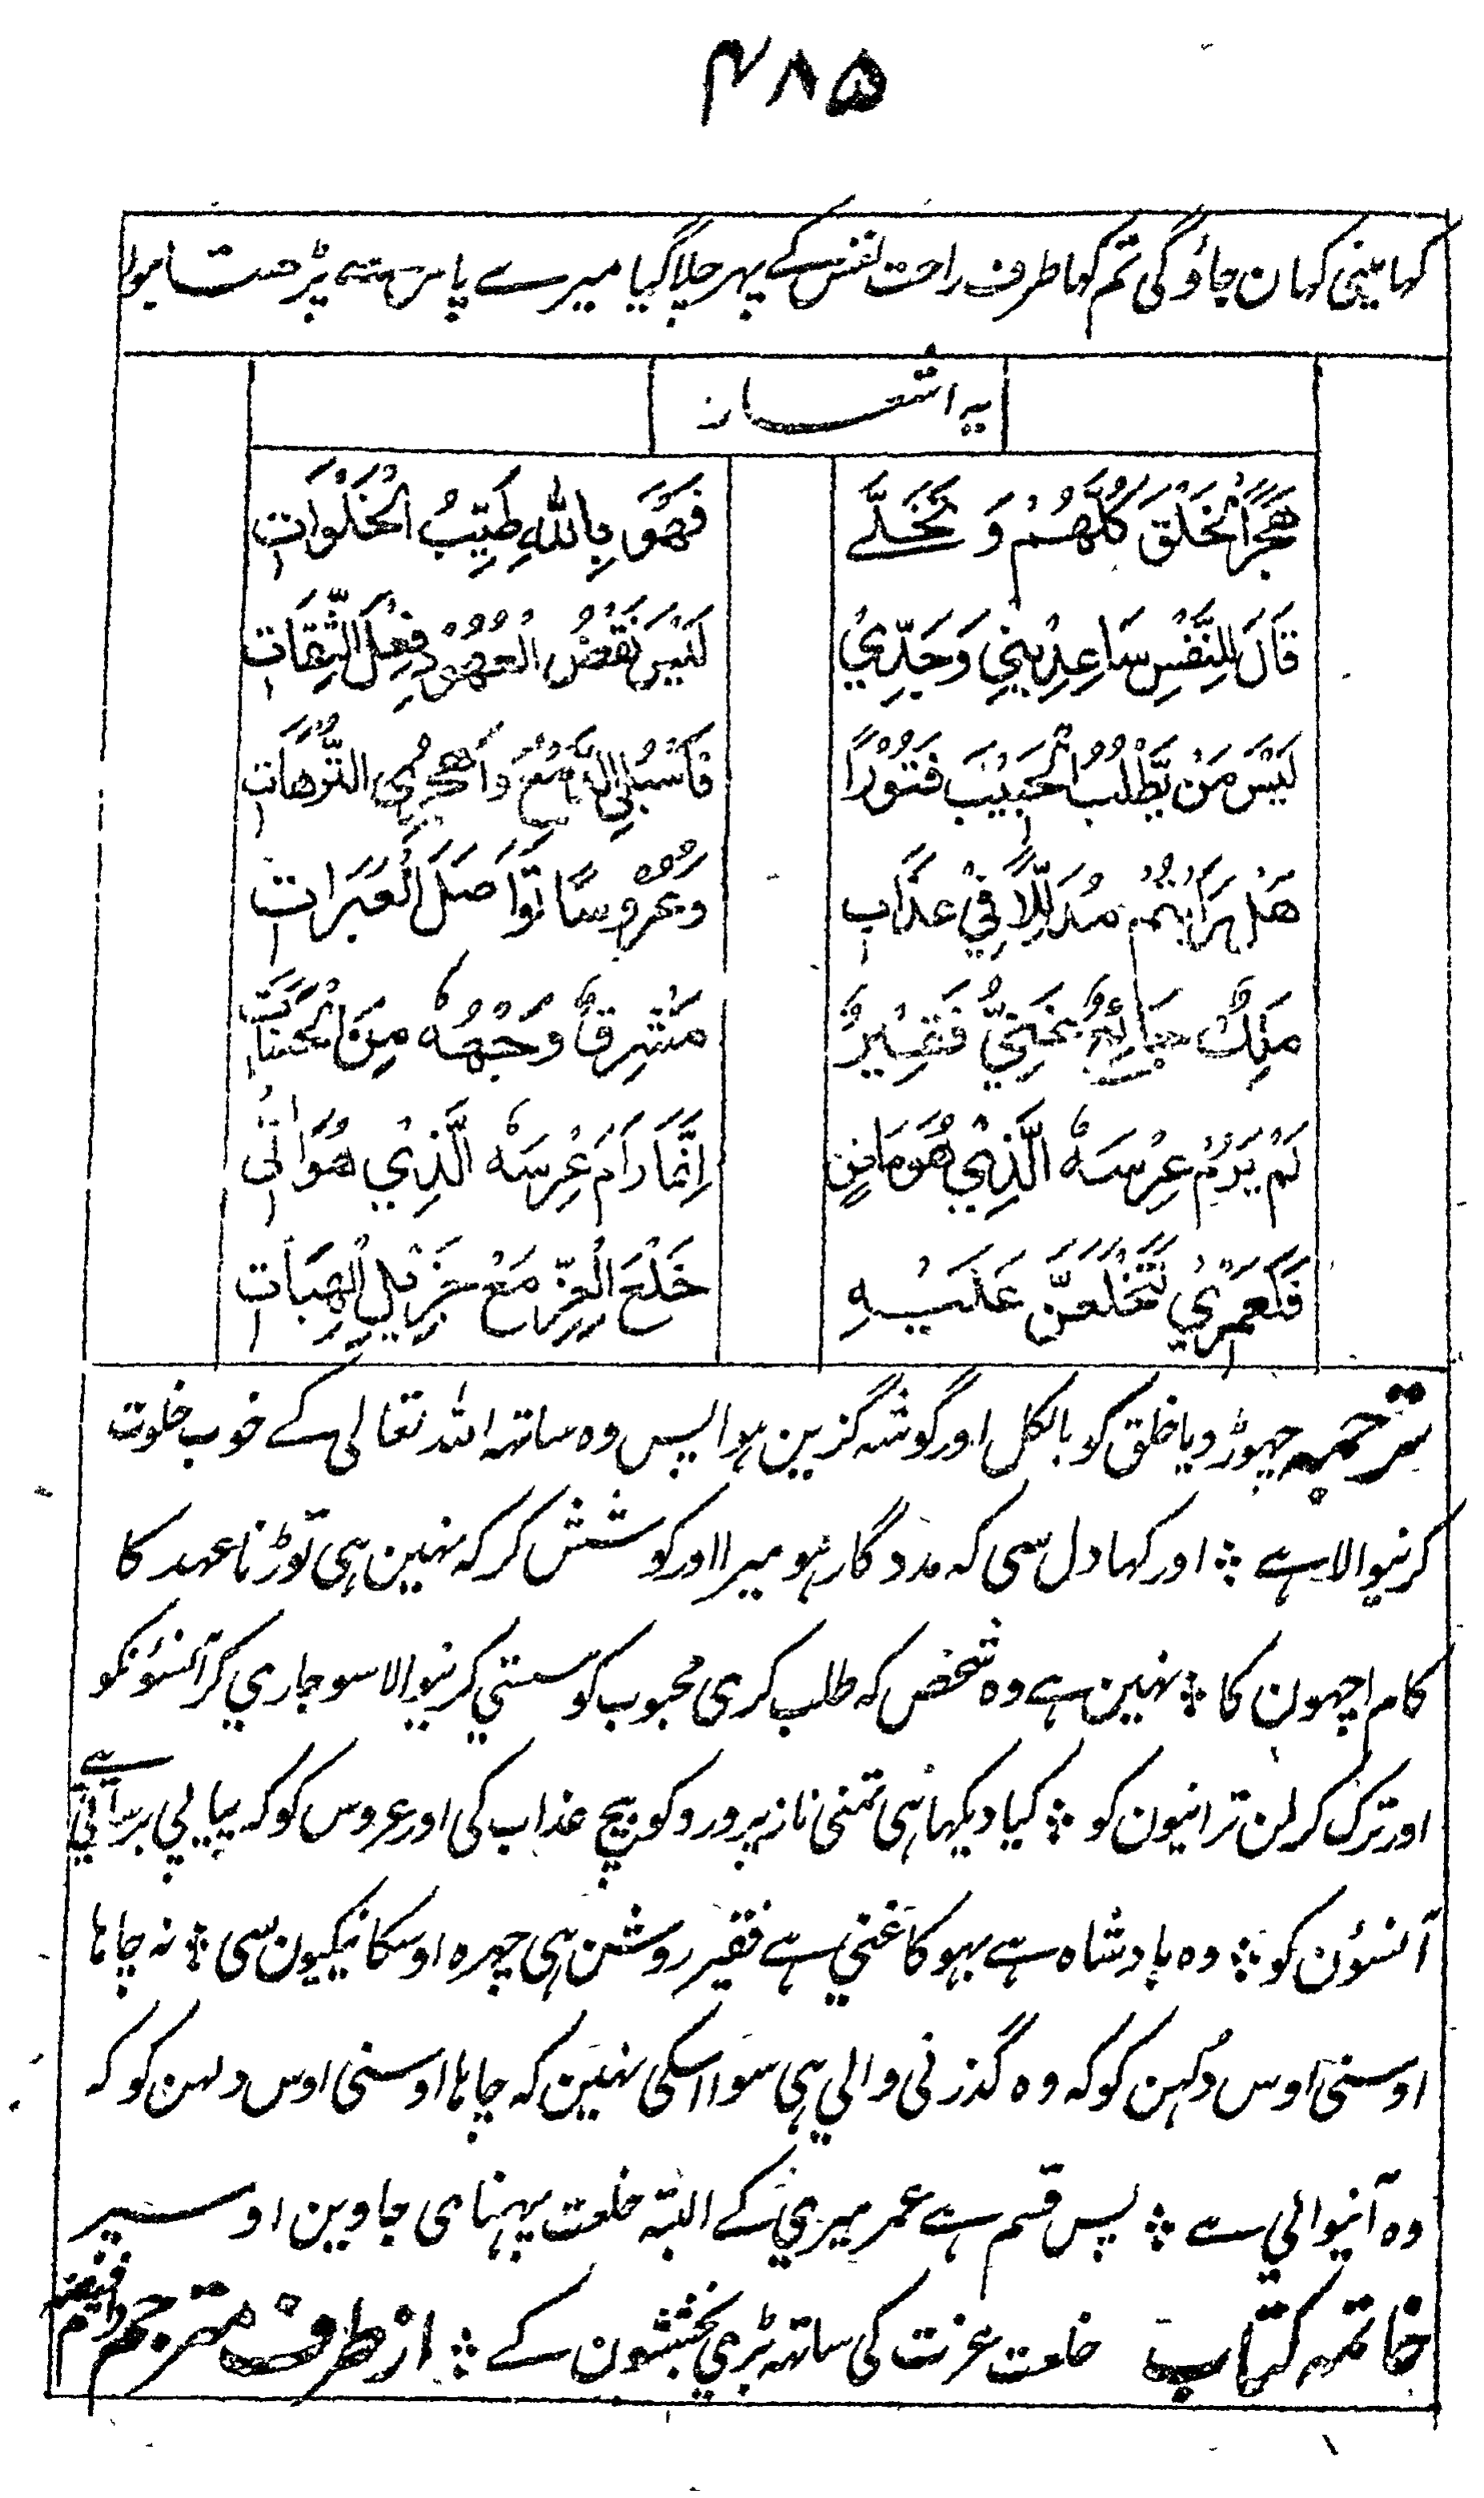 ۴۸۵
کہا مینی کہان جاؤگی تم کہا طرف راحت نفس کے پہر چلا گیا میرے پاس سے پڑہتا ہوا
یہ اشعار
هَجَرَ الْخَلْقَ كُلَّهُمْ وَ تَخَلّٰے فَهُوَ بِاللهِ طَيِّبُ الْخَلَوَاتِ
قَالَ لِلنَّفْسِ سَاعِدِيْنِي وَجَدِّيْ لَيْسَ نَقْضُ الْعُهُوْدِ فِعْلَ الثِّقَاتِ
لَيْسَ مَنْ يَطْلُبُ الْحَبِيْبَ فَتُوْرًا فَاسْبُلِي الدَّمْعَ وَاهْجُرِي التُّرَّهَاتِ
هَلْ رَاَيْتُمْ مُدَلَّلًا فِيْ عَذَابٍ وَعَرُوْسًا تَوَاصَلَ الْعَبَرَاتِ
مَلِكٌ جَائِعٌ غَنِيٌّ فَقِيْرٌ مُشْرِقًا وَجْهُهٗ مِنَ الْحَسَنَاتِ
لَمْ يَرُمْ عِرْسَهٗ الَّذِيْ هُوَ فَانٍ اِنَّمَا رَامَ عِرْسَهٗ الَّذِيْ هُوَ اٰتٍ
فَلَعَمْرِيْ لَتُخْلَعَنَّ عَلَيْهِ خِلَعُ الْعِزِّ مَعْ جَزِيْلِ الْهِبَاتِ
ترجمہ چہوڑ دیا خلق کو بالکل اور گوشہ گزین ہوا پس وہ ساتہہ اللہ تعالی کے خوب خلوت
کرنیوالا ہے ؞ اور کہا دل سی کہ مددگار ہو میرا اور کوشش کر کہ نہین ہی توڑنا عہد کا
کام اچہون کا ؞ نہین ہے وہ شخص کہ طلب کری محبوب کو سستی کرنیوالا سو جاری کر آنسؤنکو
اور ترک کر لن ترانیون کو ؞ کیا دیکہا ہی تمنی ناز پرورد کو بیچ عذاب کی اور عروس کو کہ پیاپی برساتی ہے
آنسؤن کو ؞ وہ بادشاہ ہے بہوکا غنی ہے فقیر روشن ہی چہرہ اوسکا نیکیون سی ؞ نہ چاہا
اوسنی اوس دُلہن کو کہ وہ گذرنی والی ہی سوا اسکی نہین کہ چاہا اوسنی اوس دلہن کو کہ
وہ آنیوالی سے ؞ پس قسم ہے عمر میری کے البتہ خلعت پہنای جاوین اوسپر
خلعت عزت کی ساتہہ بڑی بخششون کے ؞
خاتمہ کتاب از طرف مترجم